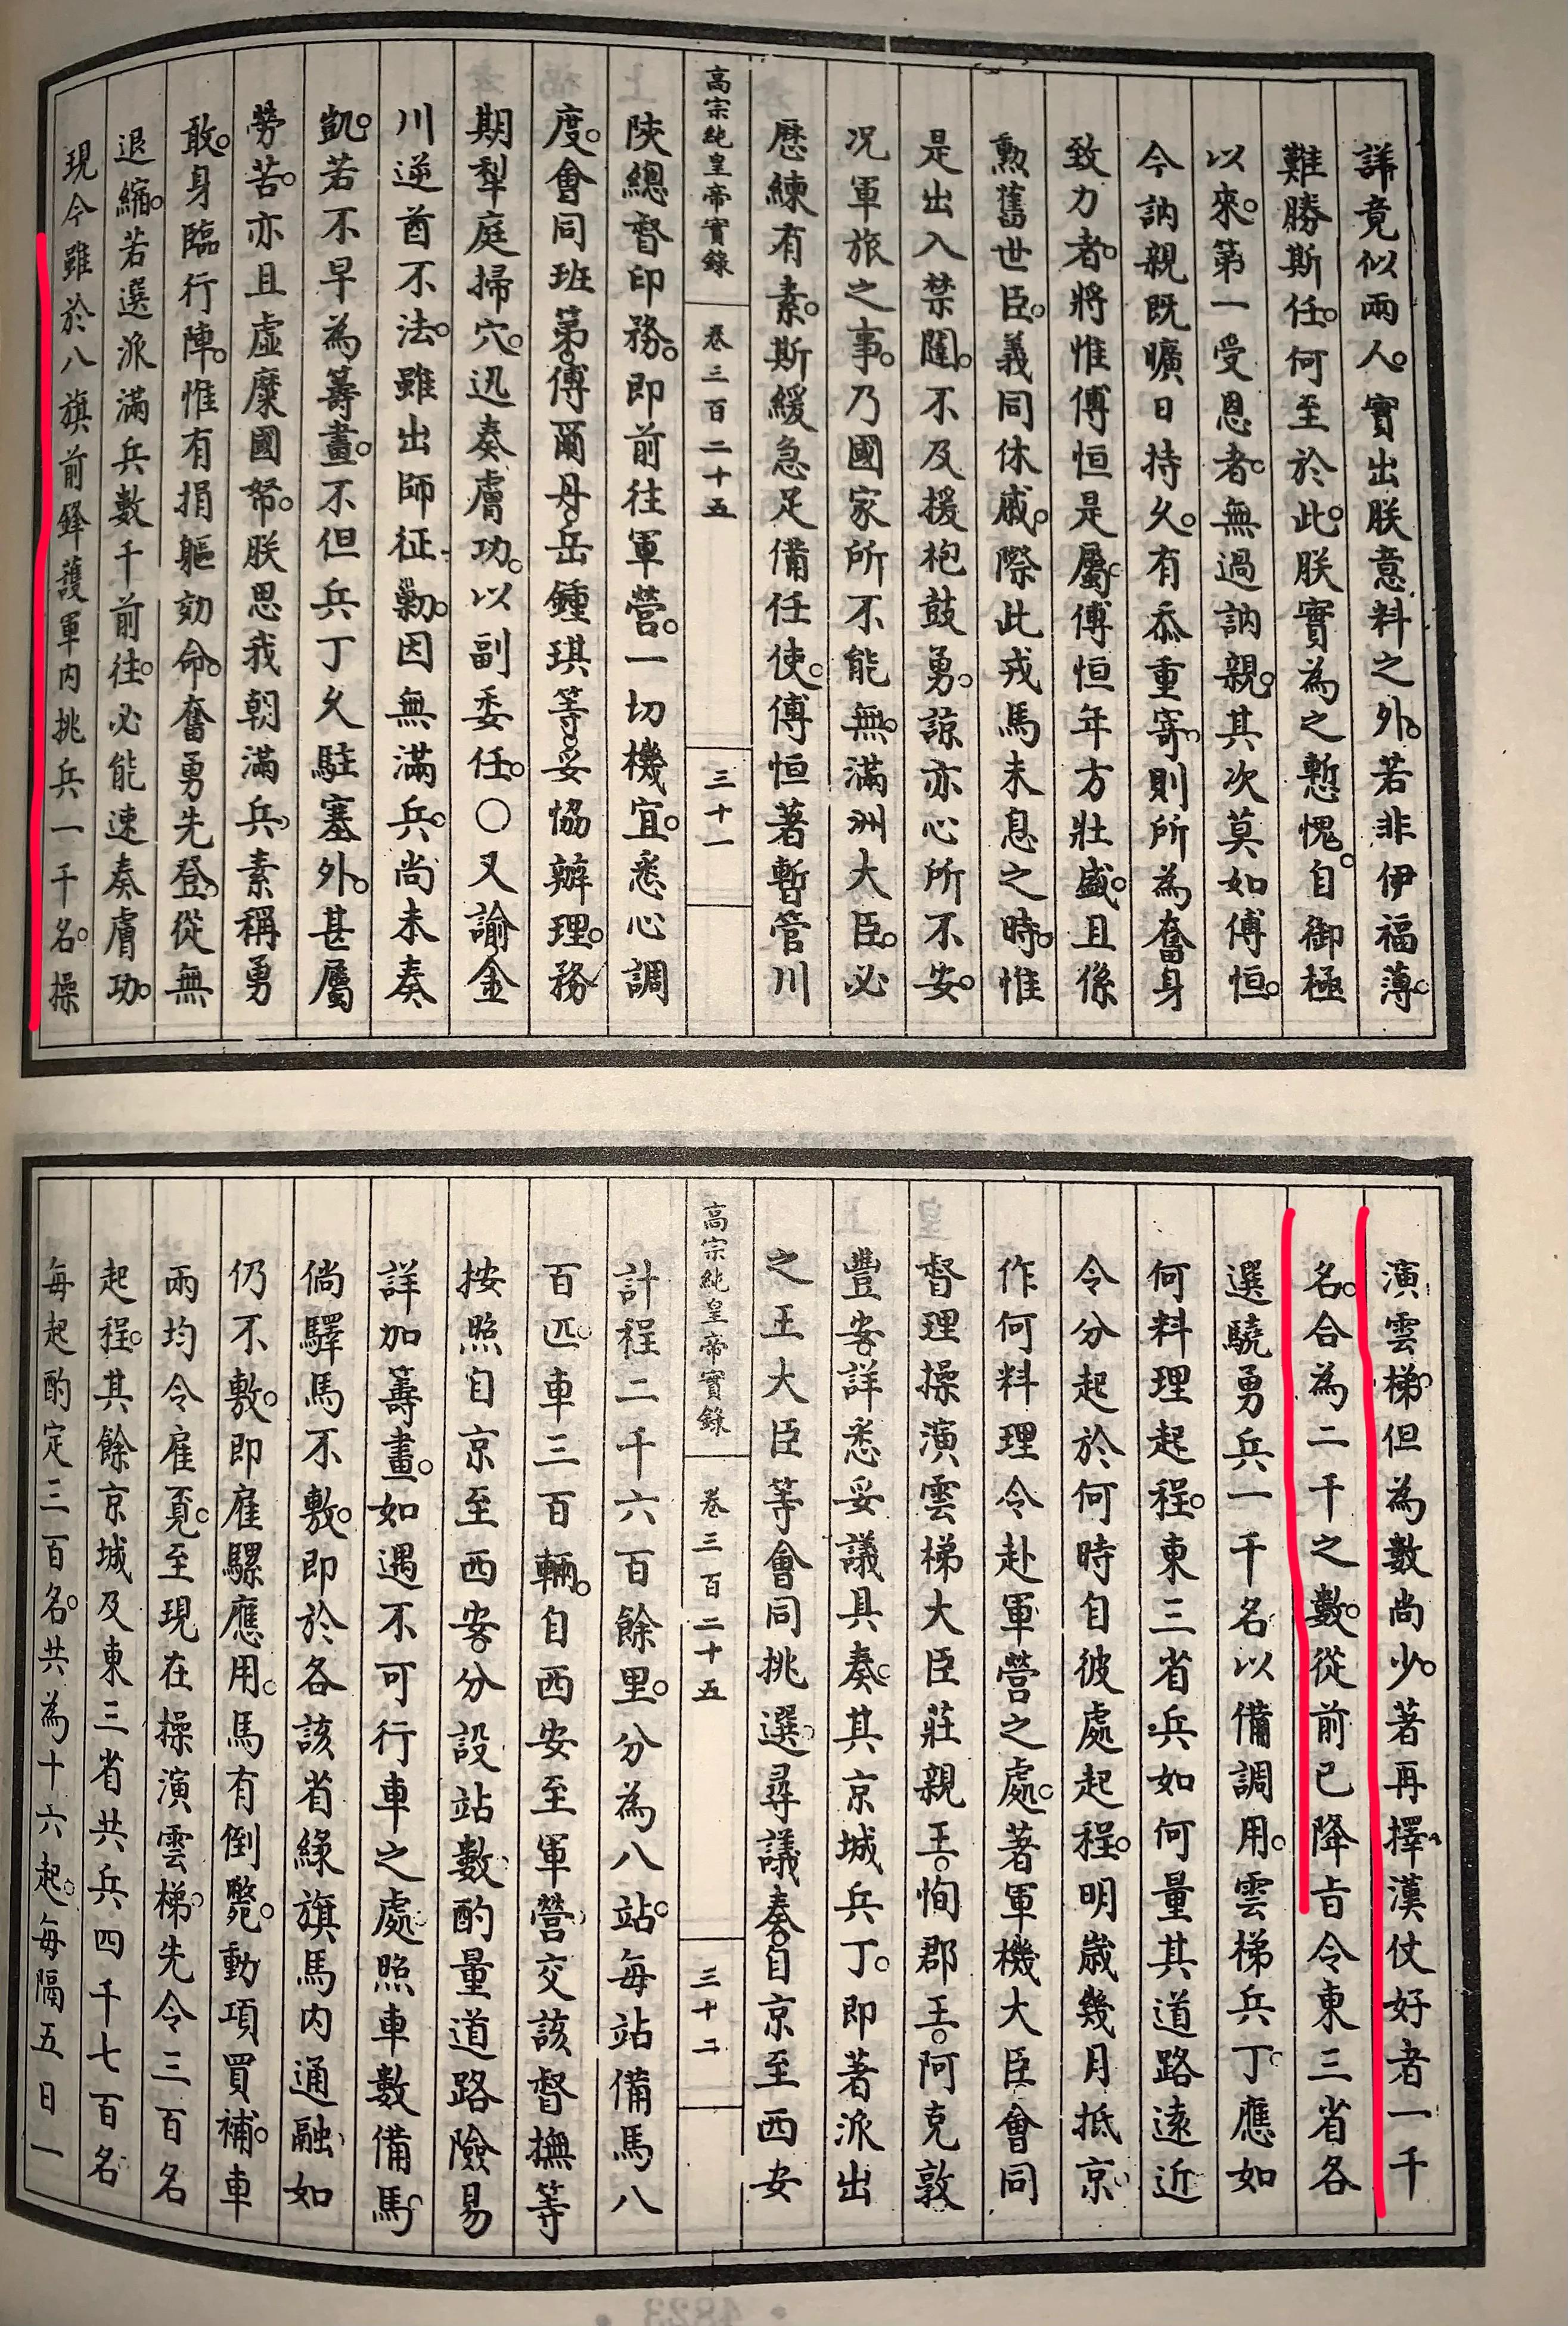 詳竟似兩人。實出朕意料之外。若非伊福薄。
難勝斯任。何至於此。朕實為之慙愧。自御極
以來。第一受恩者。無過訥親。其次莫如傅恒。
今訥親既曠日持久。有忝重寄。則所為奮身
致力者。將惟傅恒是屬。傅恒年方壯盛。且係
勳舊世臣。義同休戚。際此戎馬未息之時。惟
是出入禁闥。不及援枹鼓勇。諒亦心所不安。
况軍旅之事。乃國家所不能無。滿洲大臣。必
歷練有素。斯緩急足備任使。傅恒著暫管川
高宗純皇帝實錄 卷三百二十五 三十一
陝總督印務。即前往軍營。一切機宜。悉心調
度。會同班第。傅爾丹。岳鍾琪等。妥協辦理。務
期犁庭掃穴。迅奏膚功。以副委任。○又諭金
川逆酋不法。雖出師征勦。因無滿兵。尚未奏
凱。若不早為籌畫。不但兵丁久駐塞外。甚屬
勞苦。亦且虛糜國帑。朕思我朝滿兵。素稱勇
敢。身臨行陣。惟有捐軀効命。奮勇先登。從無
退縮。若選派滿兵數千前往。必能速奏膚功。
現今雖於八旗前鋒護軍内挑兵一千名。操
演雲梯。但為數尚少。著再擇漢仗好者一千
名。合為二千之數。從前已降旨令東三省各
選驍勇兵一千名以備調用。雲梯兵丁。應如
何料理起程。東三省兵如何量其道路遠近
令分起於何時自彼處起程。明歲幾月抵京。
作何料理令赴軍營之處。著軍機大臣會同
督理操演雲梯大臣莊親王。恂郡王。阿克敦
豐安。詳悉妥議具奏。其京城兵丁。即著派出
之王大臣等會同挑選。尋議奏。自京至西安
高宗純皇帝實錄 卷三百二十五 三十二
計程二千六百餘里。分為八站。每站備馬八
百匹。車三百輛。自西安至軍營。交該督撫等
按照自京至西安。分設站數。酌量道路險易
詳加籌畫。如遇不可行車之處。照車數備馬。
倘驛馬不敷。即於各該省綠旗馬内通融。如
仍不敷。即雇騾應用。馬有倒斃。動項買補。車
兩均令雇覓。至現在操演雲梯。先令三百名
起程。其餘京城及東三省共兵四千七百名
每起酌定三百名。共為十六起。每隔五日一